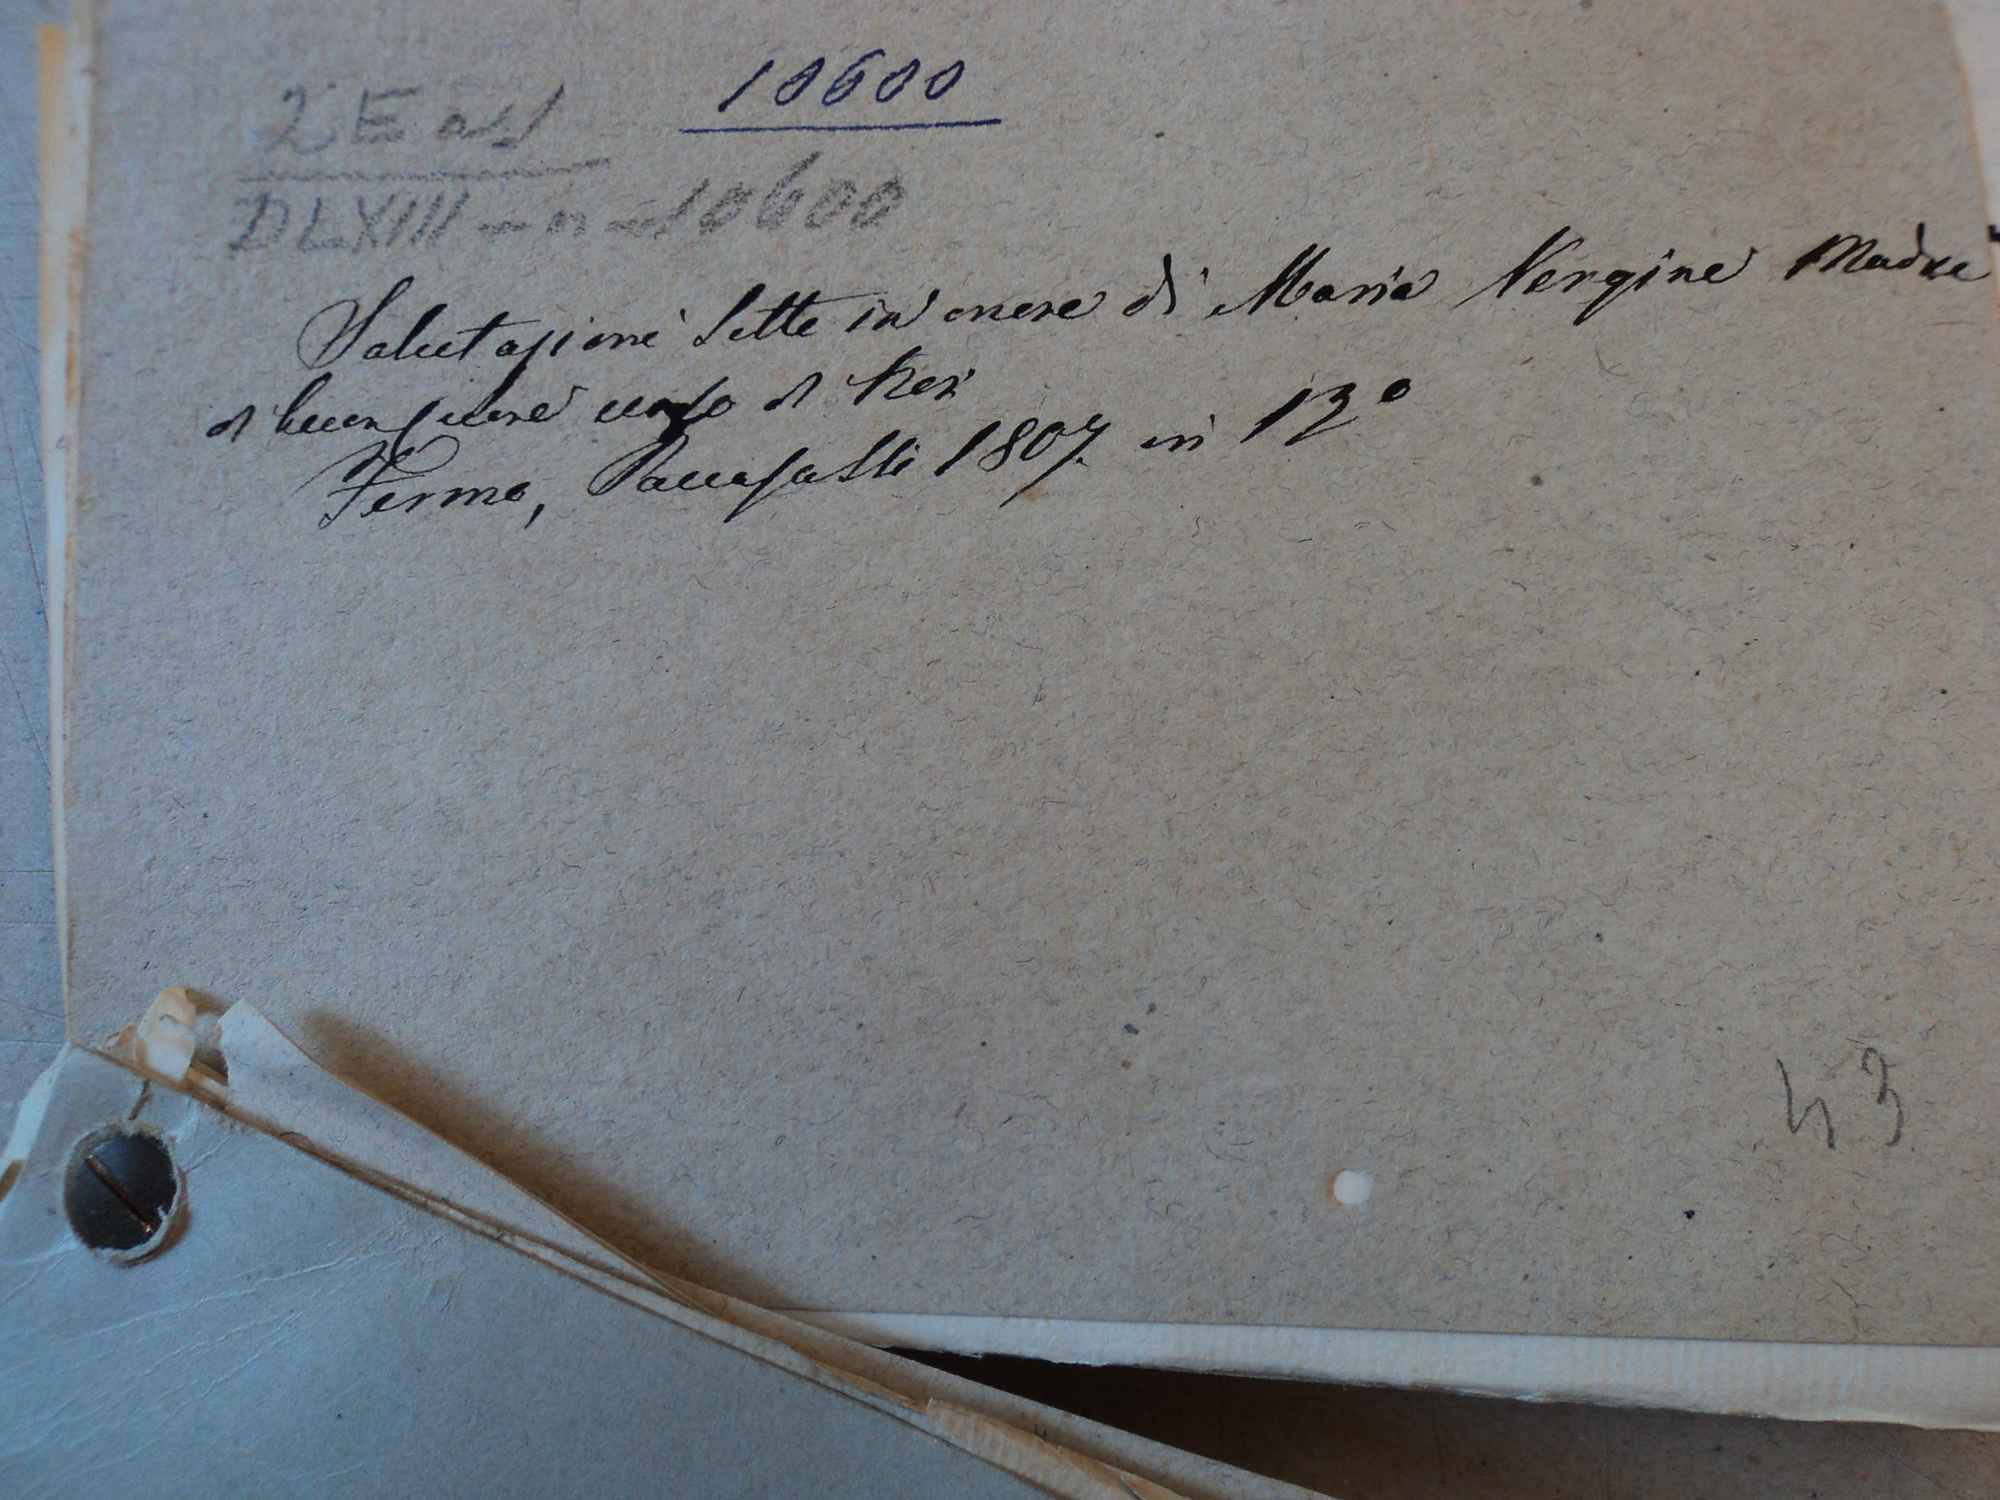 10600
DLXIII - n - 10600
Salutazioni Sette in onore di Maria Vergine Madre
di buon cuore di
Fermo, Paccasassi 1807. in 12º
43